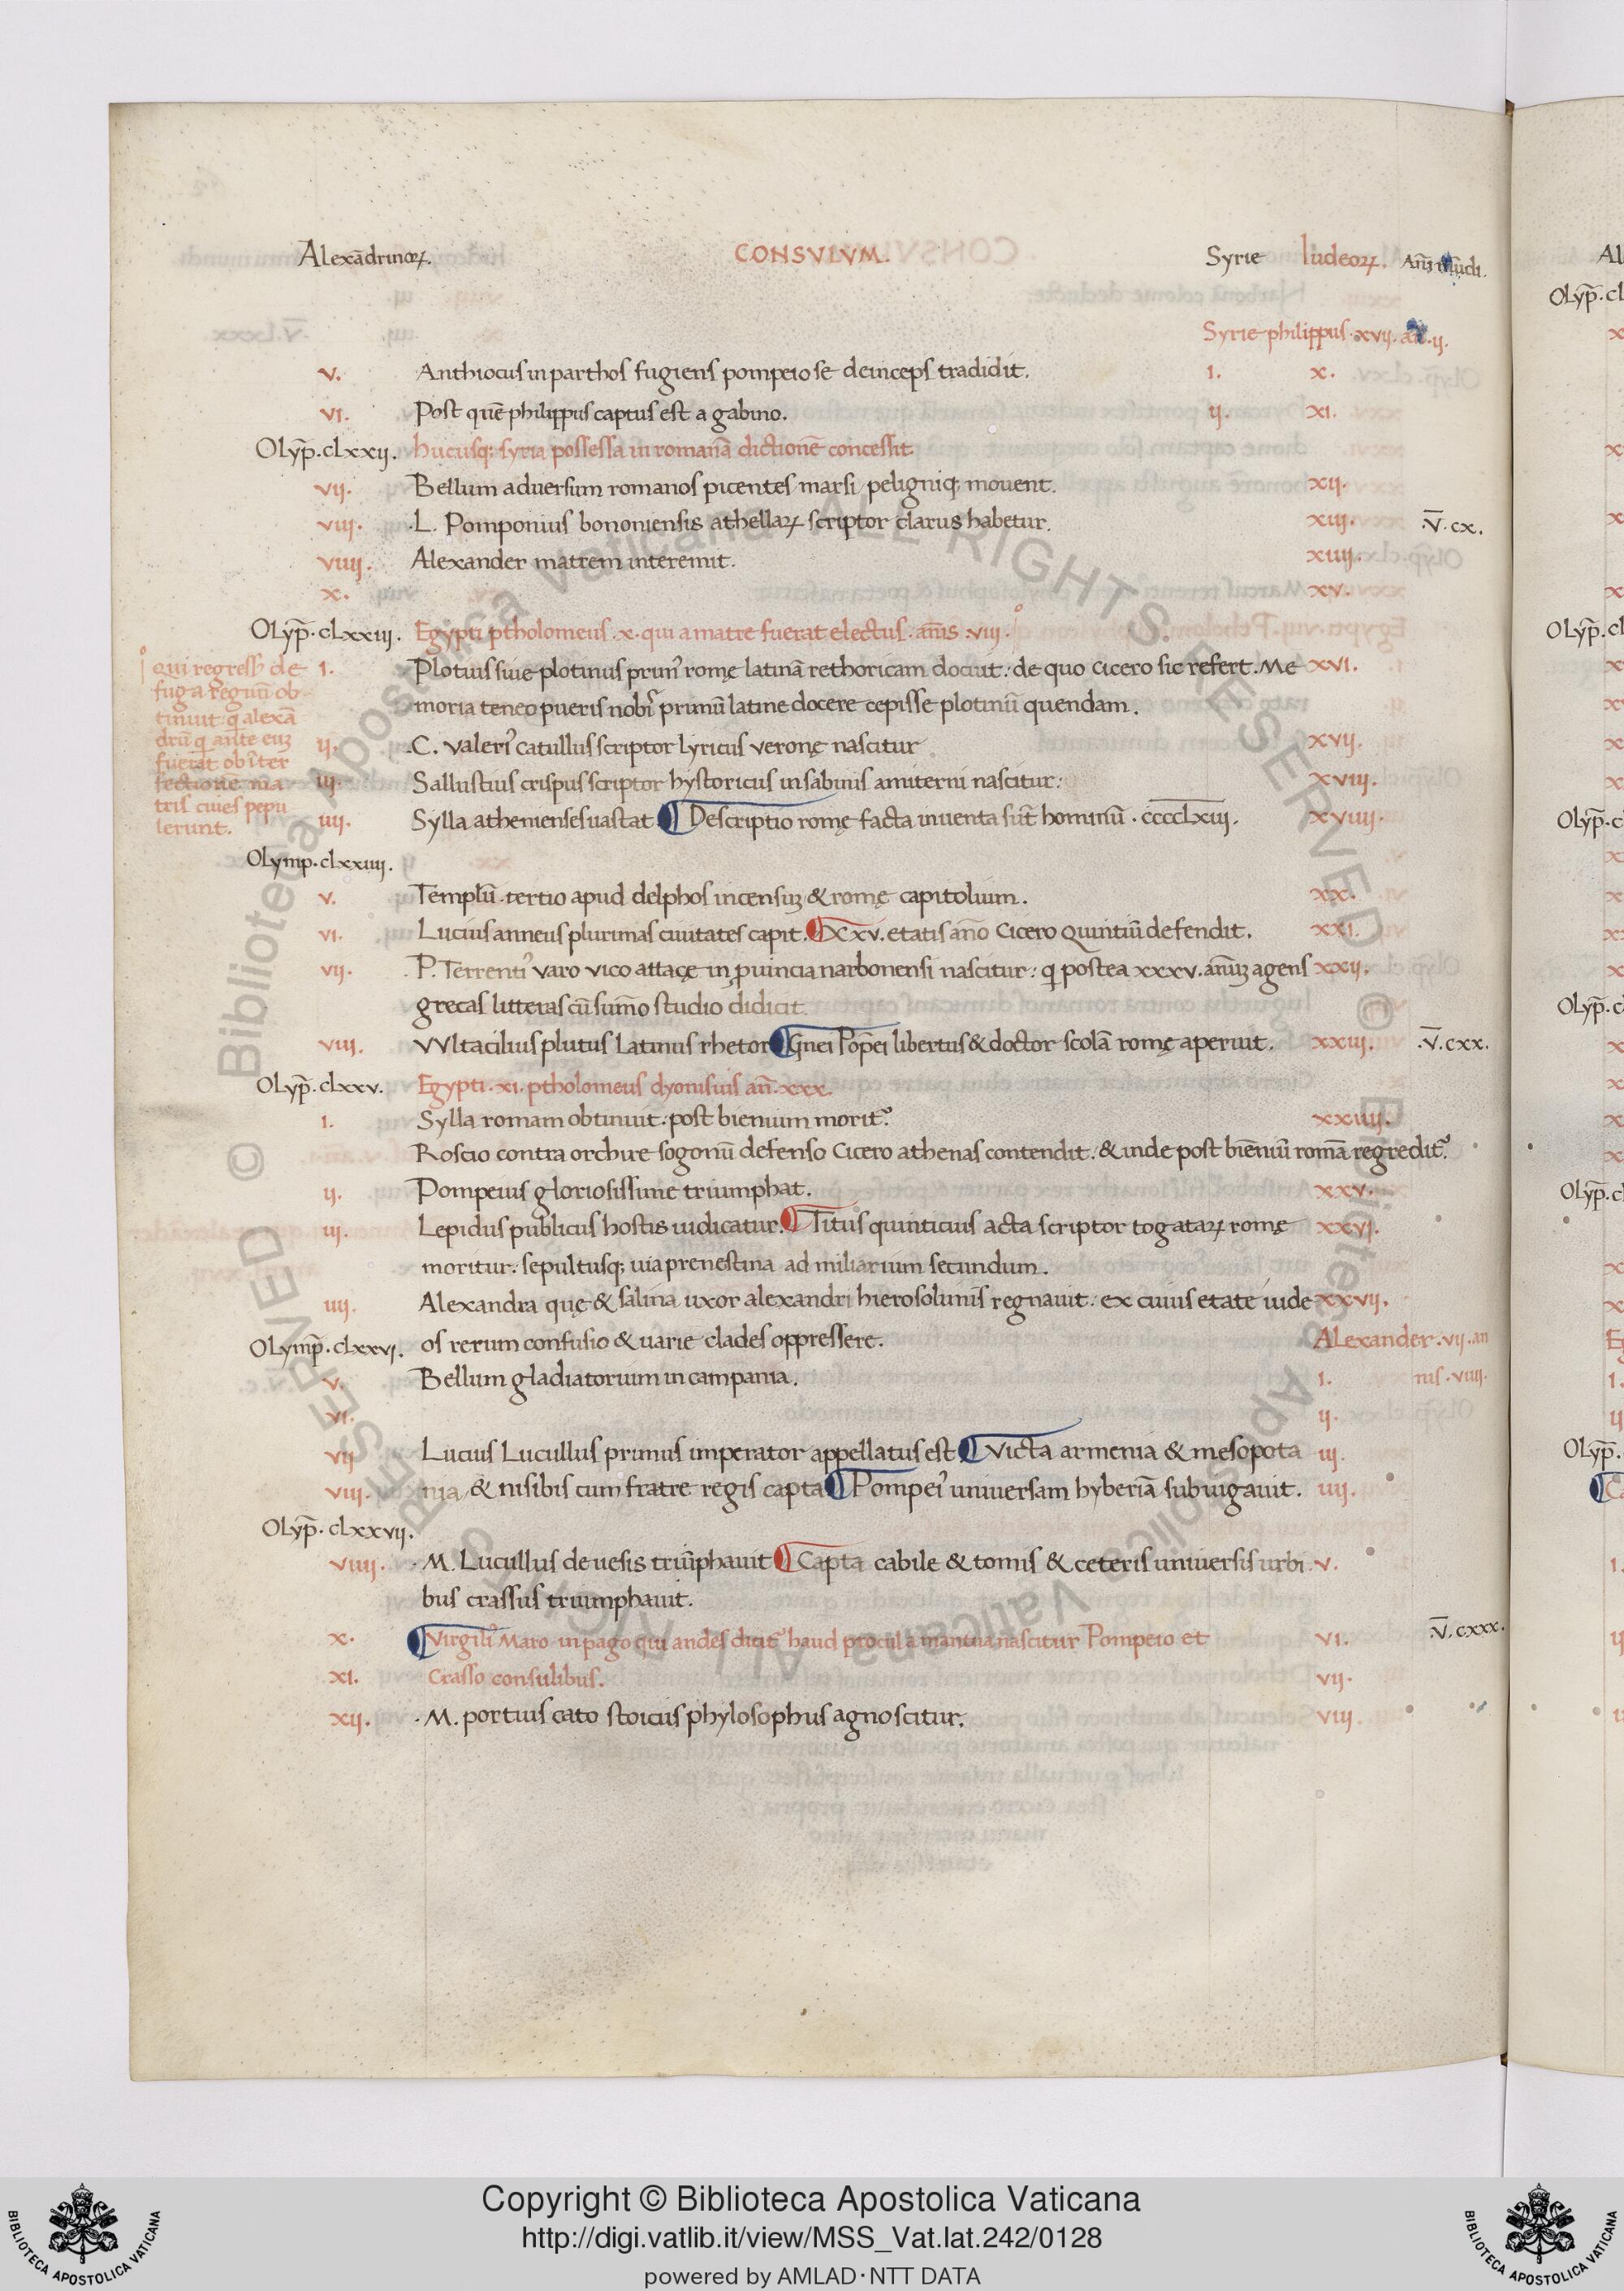 Alexādrinoꝝ. CONSVLVM. Syrie Iudeoꝝ. Añi mūdi.
Syrie philippus. xvij. añ. ij.
v. Anthiocus in parthos fugiens pompeio se deinceps tradidit. 1. x.
vi. Post quē philippus captus est a gabino. ij. xi.
Olyp̄. clxxij. hucusq; syria possessa in romanā dictionē concessit.
vij. Bellum aduersum romanos picentes marsi peligniq; mouent. xij.
viij. .L. Pomponius bononiensis athellaꝝ scriptor clarus habetur. xiij. .v̄. cx.
viiij. Alexander matrem interemit. xiiij.
x. xv.
Olyp̄. clxxiij. Egypti ptholomeus .x. qui a matre fuerat electus. añis viij.
1. Plotius siue plotinus prim᾽ romę latinā rethoricam docuit: de quo cicero sic refert. Me xvi.
moria teneo pueris nobis primū latine docere cepisse plotinū quendam.
qui regress᾽ de
fuga regnū ob
tinuit q alexā
drū q ante euꝫ
fuerat ob īter
fectionē ma
tris ciues pepu
lerunt.
ij. .C. valeri᾽ catullus scriptor lyricus veronę nascitur xvij.
iij. Sallustius crispus scriptor hystoricus in sabinis amiterni nascitur: xviij.
iiij. Sylla athenienses uastat ¶ Descriptio romę facta inuenta sūt hominū . cccclxiij. xviiij.
Olymp. clxxiiij.
v. Templū tertio apud delphos incensuꝫ & romę capitolium. xx.
vi. Lucius anneus plurimas ciuitates capit. ¶ xxv. etatis año Cicero Quintiū defendit. xxi.
vij. .P. Terrenti᾽ varo vico attacę in ꝓuincia narbonensi nascitur: q postea xxxv. annuꝫ agens xxij.
grecas litteras cū sum̄o studio didicit.
viij. VVltacilius plutus latinus rhetor ¶ Gnei Pop̄ei libertus & doctor scolā romę aperuit. xxiij. .v̄. cxx.
Olyp̄. clxxv. Egypti. xi. ptholomeus dyonisius añ. xxx.
1. Sylla romam obtinuit: post bienium morit᾽. xxiiij.
Roscio contra orchire sogonū defenso Cicero athenas contendit: & inde post bieniū romā regredit᾽.
ij. Pompeius gloriosissime triumphat. xxv.
iij. Lepidus publicus hostis iudicatur. ¶ Titus quinticius acta scriptor togataꝝ romę xxvi.
moritur: sepultusq; uia prenestina ad miliarium secundum.
iiij. Alexandra quę & salina uxor alexandri hierosolimis regnauit: ex cuius etate iude xxvij.
Olymp̄. clxxvi. os rerum confusio & uarie clades oppressere. Alexander. vij. an
v. Bellum gladiatorium in campania. 1. nis. viiij.
vi. ij.
vij Lucius Lucullus primus imperator appellatus est ¶ Victa armenia & mesopota iij.
viij. nia & nisibis cum fratre regis capta ¶ Pompei᾽ uniuersam hyberiā subiugauit. iiij.
Olyp̄. clxxvij.
viiij. .M. Lucullus de uesis triūphauit ¶ Capta cabile & tomis & ceteris uniuersis urbi v.
bus crassus triumphauit.
x. ¶ Virgili᾽ Maro in pago qui andes dicit᾽ haud procul a mantua nascitur Pompeio et vi. .v̄. cxxx.
xi. Crasso consulibus. vij.
xij. .M. portius cato stoicus phylosophus agnoscitur. viij.
Copyright © Biblioteca Apostolica Vaticana
http://digi.vatlib.it/view/MSS_Vat.lat.242/0128
powered by AMLAD·NTT DATA
BIBLIOTECA APOSTOLICA VATICANA
BIBLIOTECA APOSTOLICA VATICANA